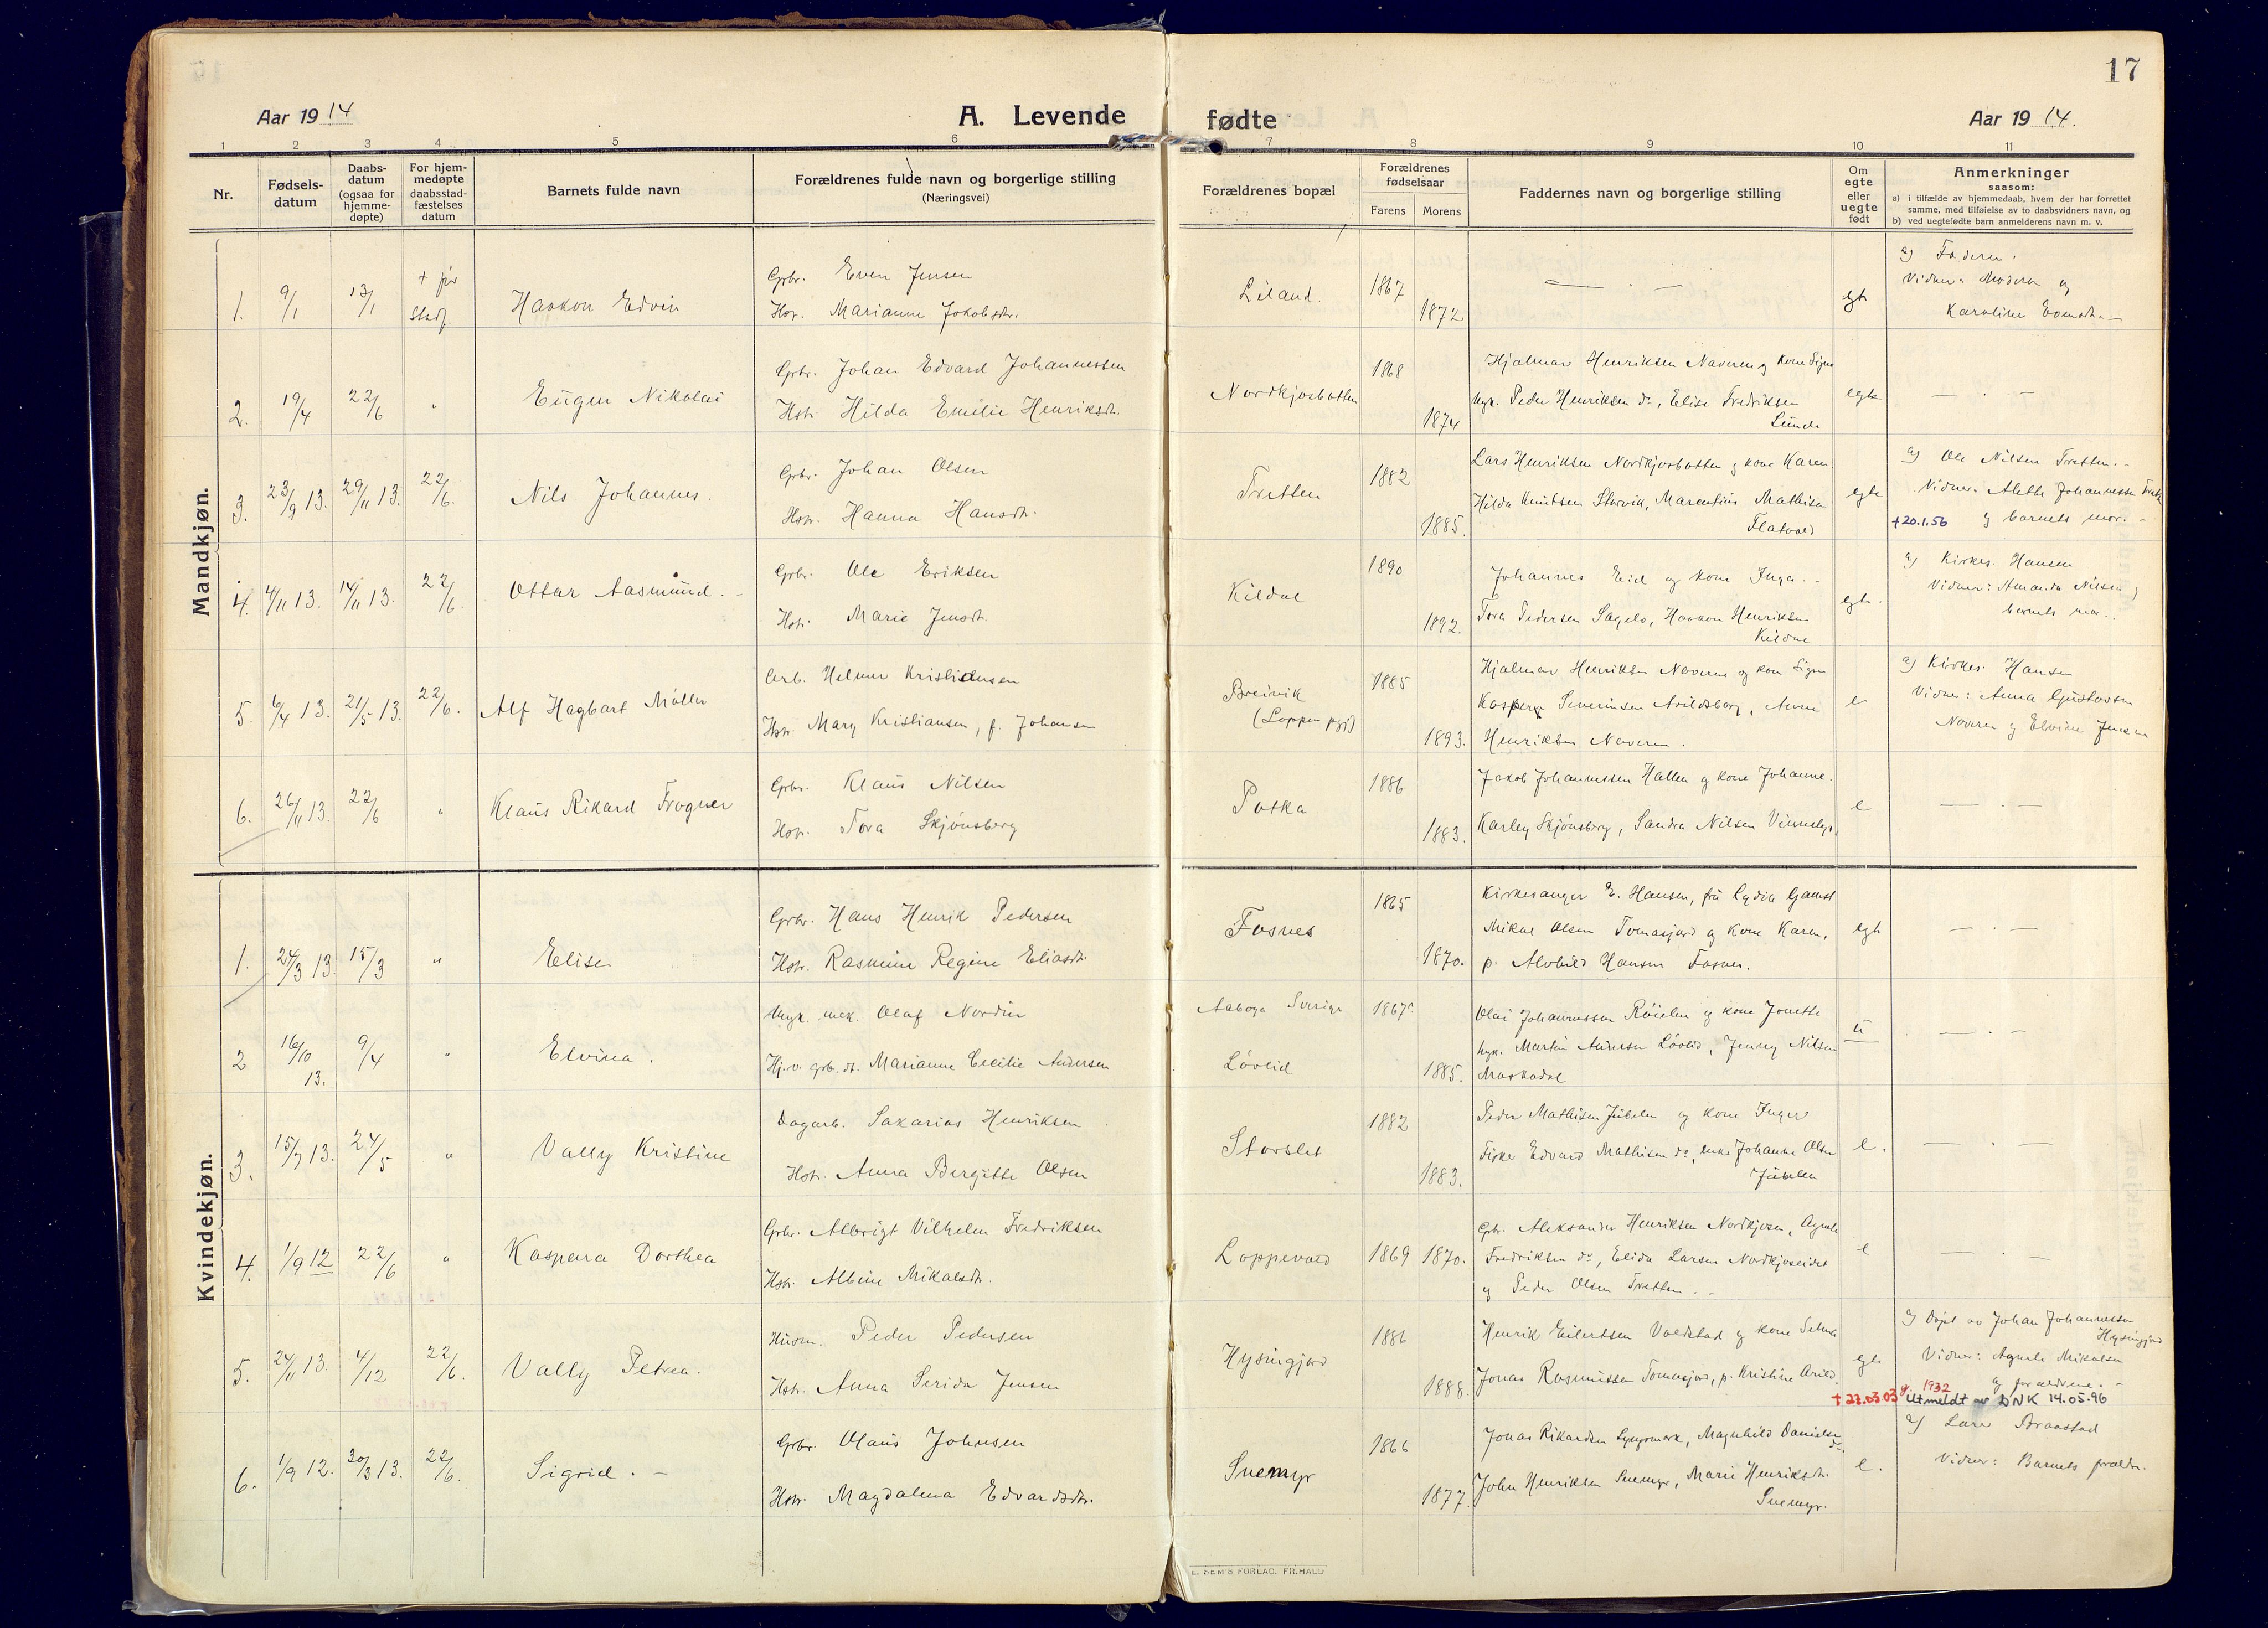 17
Aar 19 14
A. Levende
fødte
Aar 19 14.
1 2 3 4 5 6 7 8 9 10 11
Nr.
Fødsels-
datum
Daabs-
datum
(ogsaa for
hjemme-
døpte)
For hjem-
medøpte
daabsstad-
fæstelses
datum
Barnets fulde navn
Forældrenes fulde navn og borgerlige stilling
(Næringsvei)
Forældrenes bopæl
Forældrenes
fødselsaar
Farens Morens
Faddernes navn og borgerlige stilling
Om
egte
eller
uegte
født
Anmerkninger
saasom:
a) i tilfælde av hjemmedaab, hvem der har forrettet
samme, med tilføielse av to daabsvidners navn, og
b) ved uegtefødte barn anmelderens navn m. v.
Mandkjøn.
1. 9/1 13/1 + før stadf. Haakon Edvin
Grbr. Even Jensen
Hstr. Marianne Jakobsdtr.
Liland. 1867 1872
— . —
egt
a) Faderen.
Vidner: Moderen og
Karoline
2. 19/4 22/6 " Eugen Nikolai
Grbr. Johan Edvard Johannessen
Hstr. Hilda Emilie Henriksdtr.
Nordkjosbotten 1868 1874
Hjalmar Henriksen Naveren og kone Signe
Ungk. Peder Henriksen do, Elise Fredriksen
Lunde
egte
— . —
3. 23/9 13. 29/11 13. 22/6. Nils Johannes.
Grbr. Johan Olsen
Hstr. Hanna Hansdtr.
Tretten 1882 1885.
Lars Henriksen Nordkjosbotten og kone Karen
Hilda Knutsen Storvik, Marentius Mathisen
Flatvold
egte
a) Ole Nilsen Tretten.-
Vidner: Alette Johannessen
+20.1.56 og barnets mor. -
4. 4/11 13. 14/11 13. 22/6. Ottar Aasmund. -
Grbr. Ole Eriksen
Hstr. Marie Jensdtr.
Kildal 1890 1892.
Johannes Eid og kone Inga. -
Tora Pedersen Sagelv, Haakon Henriksen
Kildal
egte.
a) Kirkes. Hansen
Vidner: Amanda Nilsen og
barnets mor..
5. 6/4 13. 21/5 13. 22/6. Alf Hagbart Møller
Arb. Helmer Kristiansen
Hstr. Mary Kristiansen, f. Johansen
Breivik
(Loppen pgj) 1885 1893.
Hjalmar Henriksen Naveren og kone Signe
Kaspera Severinsen Arildsborg, Anna
Henriksen Naveren.
e
a) Kirkes. Hansen
Vidner: Anna Gustavsen
Naveren og Elvine Jensen
6. 26/11 13. 22/6 " Klaus Rikard Frogner
Grbr. Klaus Nilsen
Hstr. Tora Skjønsberg
Potka 1886 1883.
Jakob Johannessen Hatten og kone Johanne.
Karley Skjønsberg, Sandra Nilsen
e
— . —
Kvindekjøn.
1. 24/3 13. 15/3 " Elise
Grbr. Hans Henrik Pedersen
Hstr. Rasmine Regine Eliasdtr.
Fosnes 1865 1870.
Kirkesanger E. Hansen, fru Lydia Gamst
Mikal Olsen Tomasjord og kone Karen,
p. Alvhild Hansen Fosnes.
egte
— . —
2 16/10 13. 9/4 " Elvina.
Ungk. mek. Olaf Nordin
Hj.v. grb.dt. Marianne Cecilie Andersen
Aaboga Sverige
Løvlid 1867 1885.
Olai Johannessen Røielen og kone Jonette
Ungk. Martin Andersen Løvlid, Jenny Nilsen
Markadal
u
— . —
3. 15/7 13. 24/5 " Vally Kristine
Dagarb. Sakarias Henriksen
Hstr. Anna Bergitte Olsen
Storslet 1882 1883.
Peder Mathisen Jubelen og kone Inger
Fisker Edvard Mathisen do, enke Johanne Olsen
Jubelen
e.
— . —
4. 1/9 12 22/6 " Kaspara Dorthea
Grbr. Albrigt Vilhelm Fredriksen
Hstr. Albine Mikalsdtr.
Loppevold 1869 1870.
Gbr. Aleksander Henriksen Nordkjosen, Agnete
Fredriksen do, Elida Larsen Nordkjoseidet
og Peder Olsen Tretten. -
e
— . —
5. 24/11 13. 4/12 22/6. Vally Petrea.
Husm. Peder Pedersen
Hstr. Anna Serida Jensen
Hysingjord 1886 1888.
Henrik Eilertsen Voldstad og kone Selma
Jonas Rasmussen Tomasjord, p. Kristine Arild.
egte
a) Døpt av Johan Johannessen
Hysingjord
Vidner: Agnete Mikalsen
og forældrene. -
+ 27.03.03 g. 1932
Utmeldt av DNK 14.05.96
6. 1/9 12. 30/3 13. 22/6. Sigrid. -
Grbr. Olaus Johnsen
Hstr. Magdalena Edvardsdtr.
Snemyr 1866 1877.
Jonas Rikardsen Lyngmark, Magnhild Danielsen
do.
John Henriksen Snemyr, Marie Henriksdtr.
Snemyr.
e.
a) Lars Braastad
Vidner: Barnets forældre.
E. SEM'S FORLAG. FR.HALD